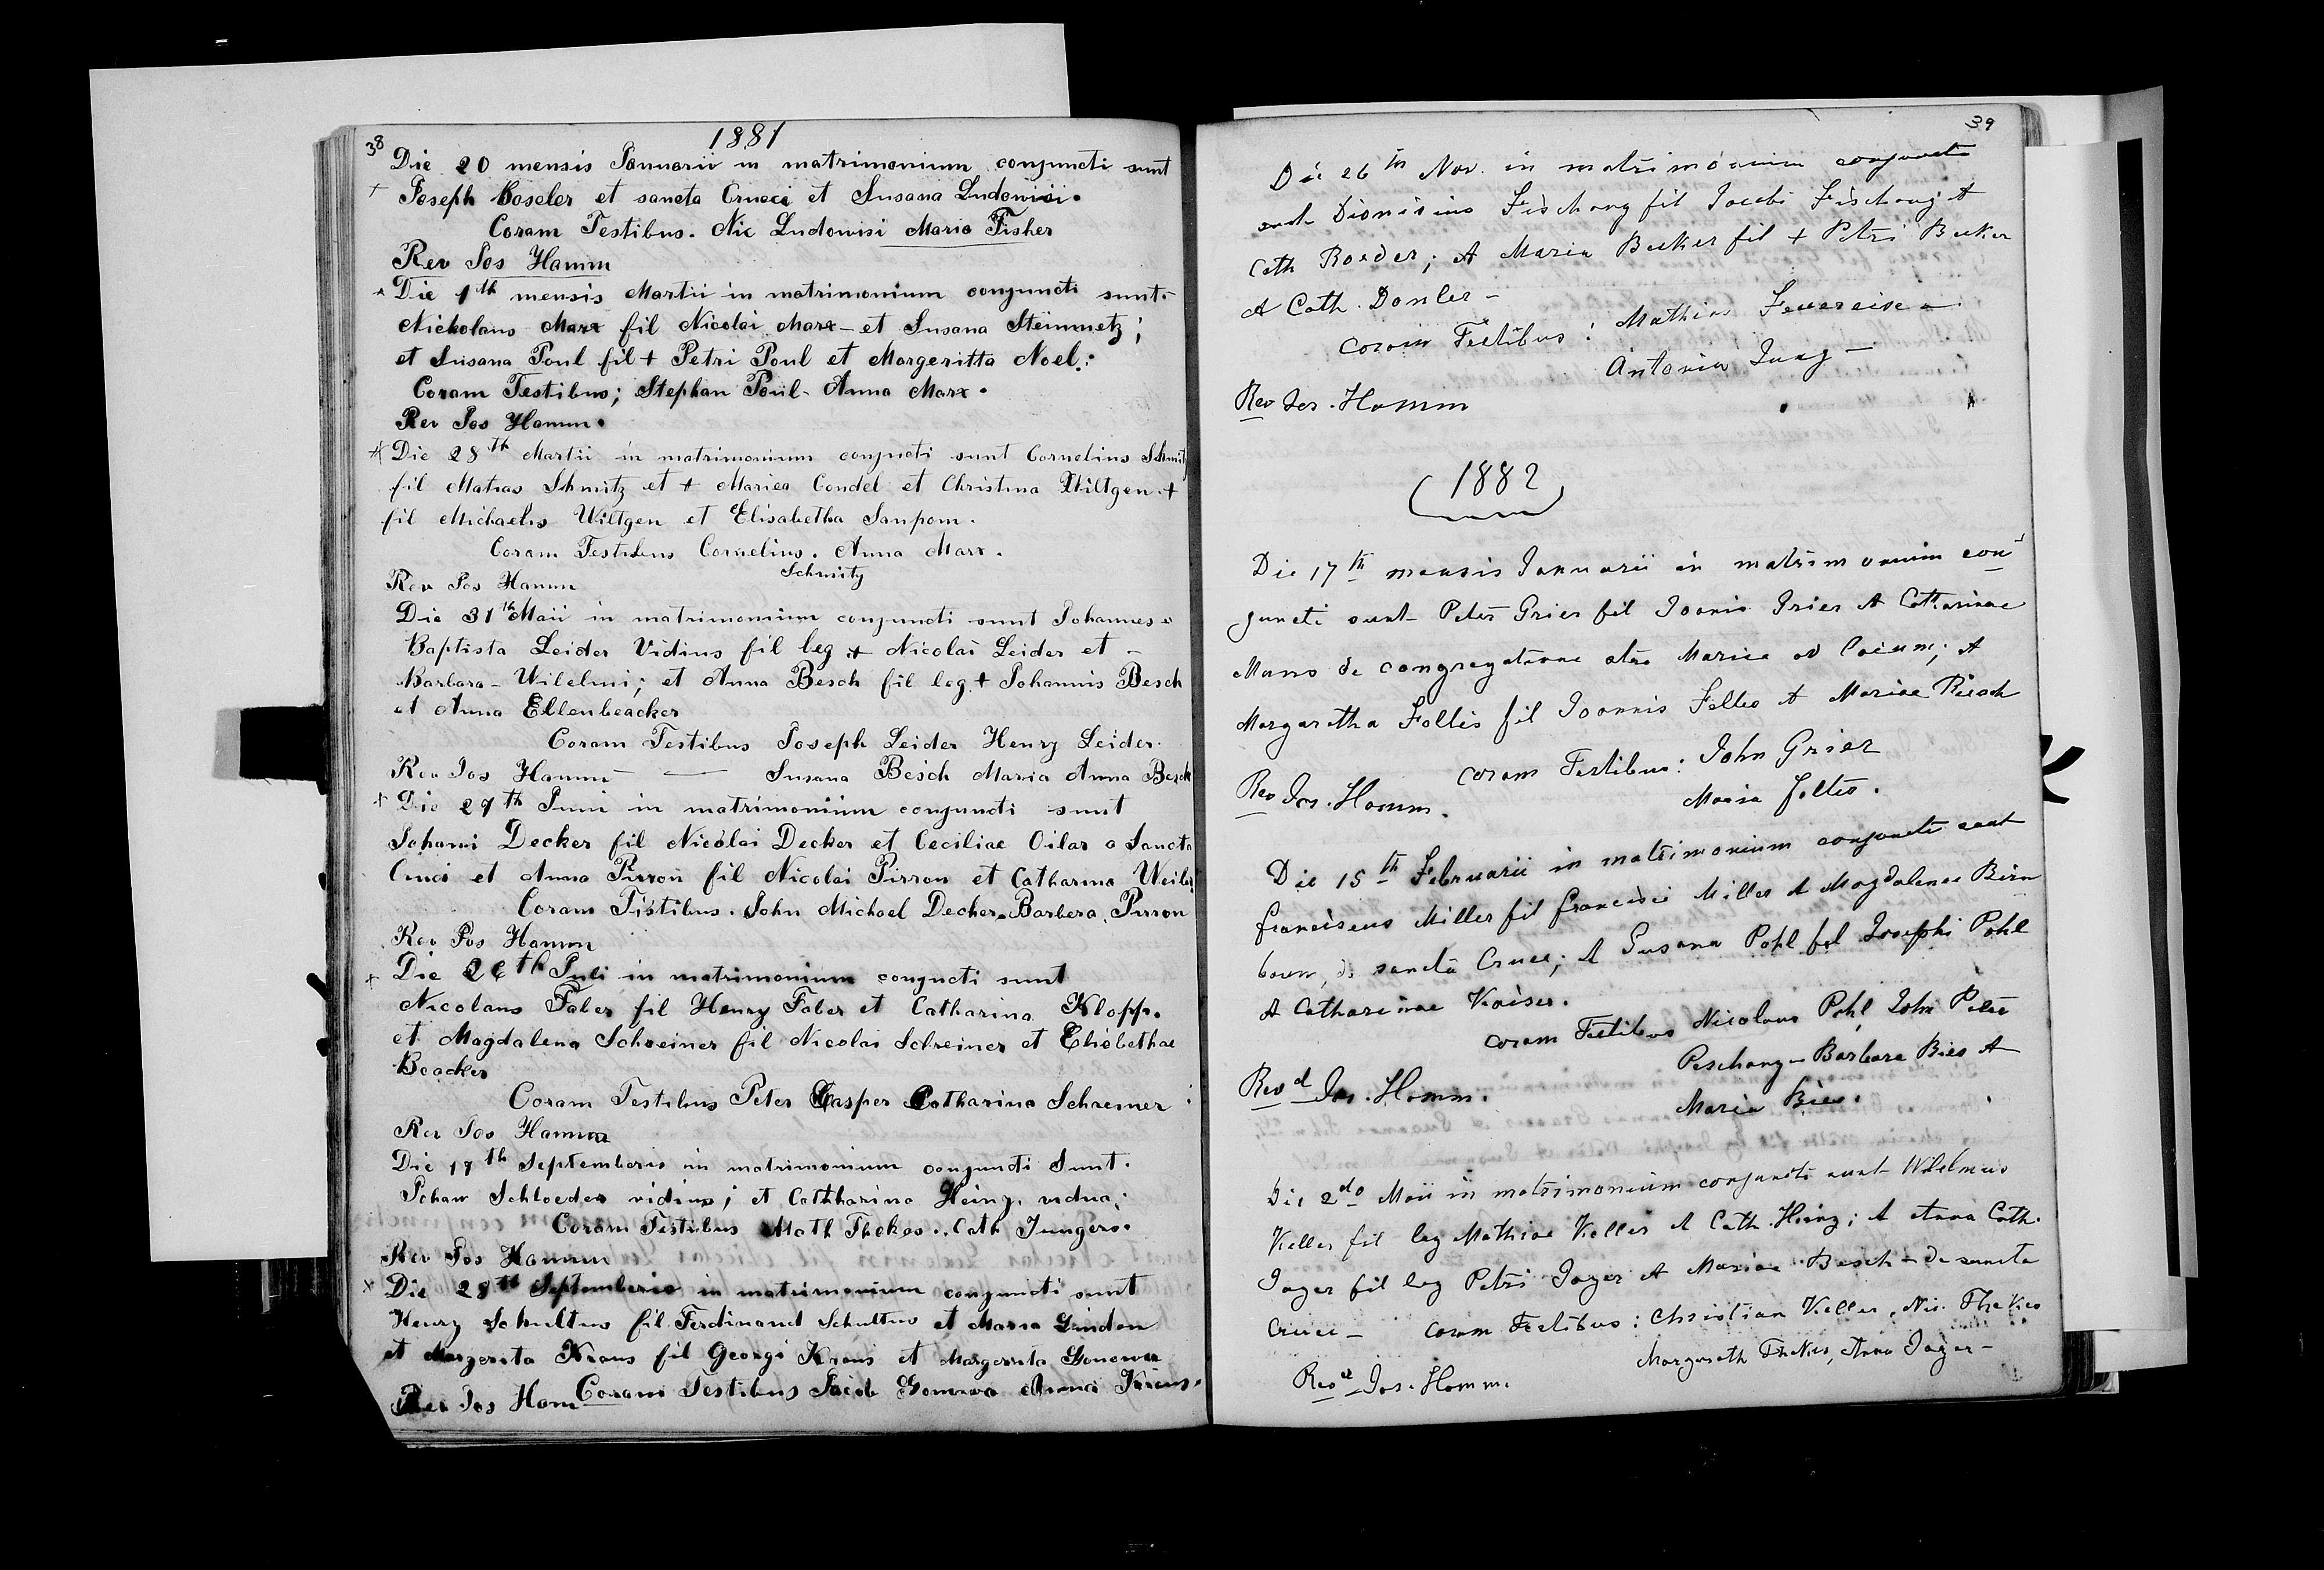 38
1881
Die 20 mensis Januarii in matrimonium conjuncti sunt
+ Joseph Boseler et sancta Cruci et Susana Ludowisi.
Coram Testibus. Nic Ludowisi Maria Fisher
Rev Jos Hamm
Die 1th mensis Martii in matrimonium conjuncti sunt-
Nickolaus Marx fil Nicolai Marx - et Susana Steinmetz;
et Susana Poul fil + Petri Poul et Margeritta Noel.:
Coram Testibus; Stephan Poul - Anna Marx.
Rev Jos Hamm.
Die 28th Martii in matrimonium conjucti sunt Cornelius Schmitz
fil Matias Schmitz et + Mariea Condel et Christina Wiltgen +
fil Michaelis Wiltgen et Elisabetha Sanpom.
Coram Testibus Cornelius. Anna Marx.
Schmitz
Rev Jos Hamm
Die 31th Maii in matrimonium conjuncti sunt Johannes
Baptista Leider Vidius fil leg + Nicolai Leider et -
Barbara - Wilelmi; et Anna Besch fil leg + Johannis Besch
et Anna Ellenbeacker
Coram Testibus Joseph Leider Henry Leider.
Rev Jos Hamm - Susana Besch Maria Anna Besch
+ Die 29th Juni in matrimonium conjuncti sunt
Johanni Decker fil Nicolai Decker et Ceciliae Oilar a Sancta
Cruci et Anna Pirron fil Nicolai Pirron et Catharina Weiler
Coram Tistibus. John Michael Decker - Barbera Pirron
Rev Jos Hamm
+ Die 26th Juli in matrimonium conjucti sunt
Nicolaus Faber fil Henry Faber et Catharina Klopp.
et Magdalena Schreiner fil Nicolai Schreiner et Elisbethae
Beacker
Coram Testibus Peter Casper Catharina Schreiner
Rev Jos Hamm
Die 17th Septemberis in matrimonium conjuncti Sunt.
Johan Schloeder vidius; et Cathharina Heinz. vidua;
Coram Testibus Math Thekes.. Cath Jungers.
Rev Jos Hamm
x Die 28th Septemberis in matrimonium conjuncti sunt
Henry Schultus fil Ferdinand Schultus et Maria Lindon
et Margerita Kraus fil Georgi Kraus et Margerita Gonower
Rev Jos Ham Coram Testibus Jacob Anna Kraus.
39
Die 26th Nov. in matrimonium conjuncti
sunt Dionisius Fischang fil Jacobi Fischang et
Cath Roeder; et Maria Becker fil + Petri Becker
et Cath. Donler -
coram Testibus: Mathias Fevereise -
Antonia Jung -
Rev Jos. Hamm
1882
Die 17th mensis Januarii in matrimonium con
juncti sunt Peter Grier fil Joanis Grier et Catharinae
Maus de congregatione Mariae ad Lacum; et
Margaretha Feltes fil Joannis Feltes et Mariae Riesch
coram Testibus: John Grier
Rev Jos. Hamm. Maria Feltes.
Die 15th Februarii in matrimonium conjuncti sunt
Franciscus Miller fil Francisci Miller et Magdalenae Birn
boum, de sancta Cruce; et Susana Pohl fil Josephi Pohl
et Catharinae Kaiser.
coram Testibus Nicolaus Pohl, John Peter
Peschang - Barbara Bies et
Revd Jos. Hamm. Maria Bies.
Die 2do Maii in matrimonium conjuncti sunt Wilelmus
Keller fil leg Mathiae Keller et Cath. Heinz; et Anna Cath.
Jager fil leg Petri Jager et Mariae Besch - de sancta
Cruce - coram Testibus: Christian Keller, Nic. Thekes
Margareth Thekes, Anna Jager -
Revd Jos. Hamm.